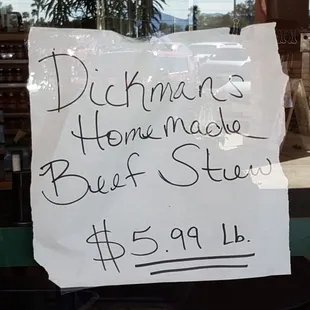 Dickman's
Homemade
Beef Stew
$5.99 Lb.